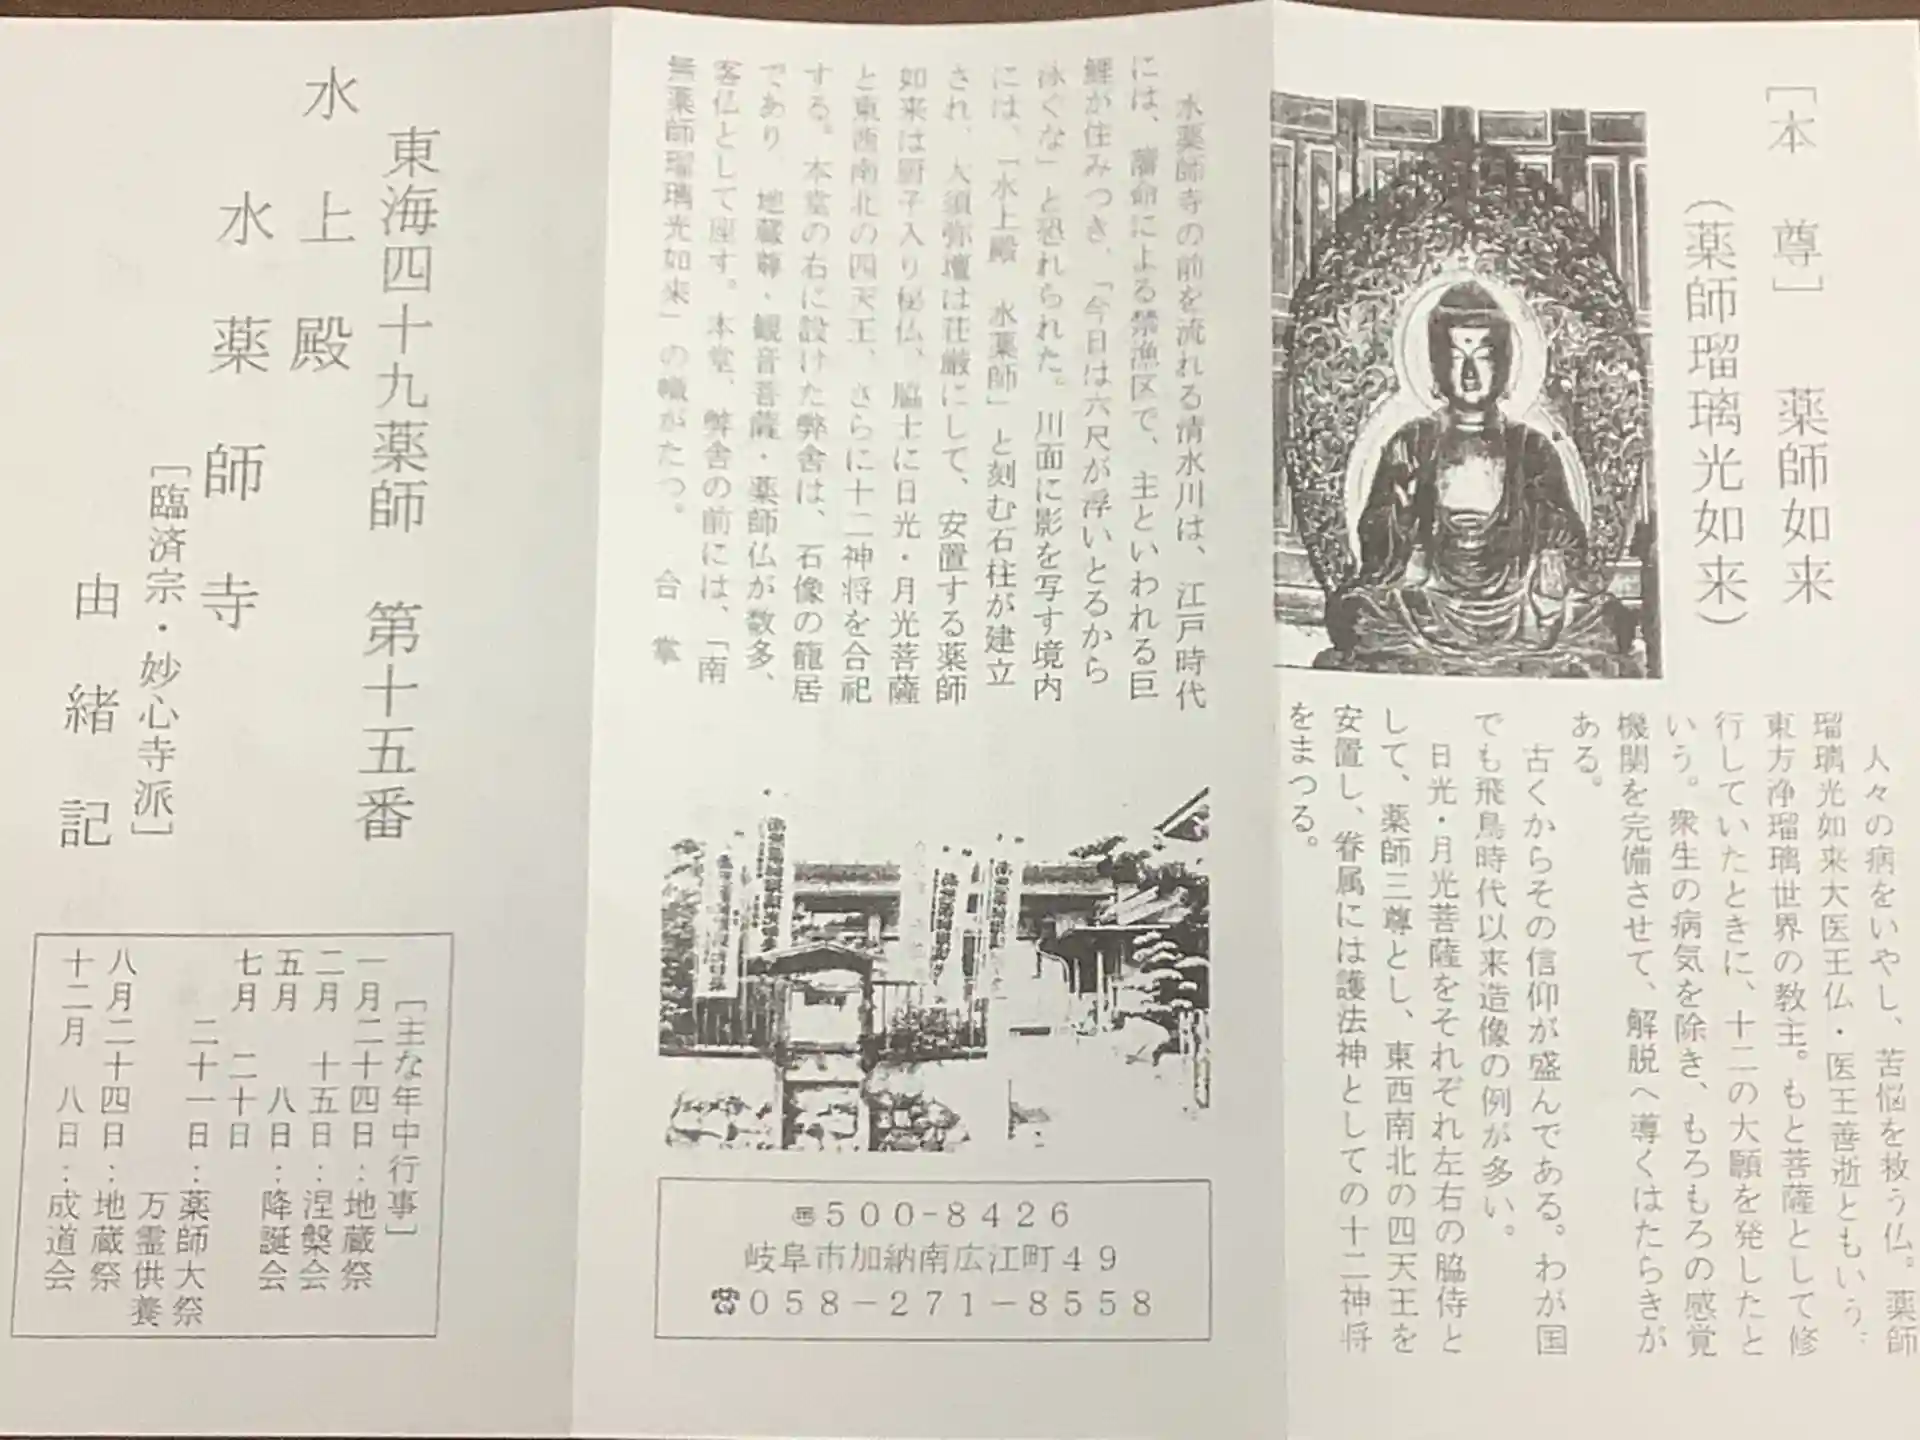 [本 尊] 薬師如来
(薬師瑠璃光如来)
人々の病をいやし、苦悩を救う仏。薬師
瑠璃光如来大医王仏・医王善逝ともいう。
東方浄瑠璃世界の教主。もと菩薩として修
行していたときに、十二の大願を発したと
いう。衆生の病気を除き、もろもろの感覚
機関を完備させて、解脱へ導くはたらきが
ある。
古くからその信仰が盛んである。わが国
でも飛鳥時代以来造像の例が多い。
日光・月光菩薩をそれぞれ左右の脇侍と
して、薬師三尊とし、東西南北の四天王を
安置し、眷属には護法神としての十二神将
をまつる。
水薬師寺の前を流れる清水川は、江戸時代
には、藩命による禁漁区で、主といわれる巨
鯉が住みつき、「今日は六尺が浮いとるから
泳ぐな」と恐れられた。川面に影を写す境内
には、「水上殿 水薬師」と刻む石柱が建立
され、大須弥壇は荘厳にして、安置する薬師
如来は厨子入り秘仏、脇士に日光・月光菩薩
と東西南北の四天王、さらに十二神将を合祀
する。本堂の右に設けた弊舎は、石像の籠居
であり、地蔵尊・観音菩薩・薬師仏が数多、
客仏として座す。本堂、弊舎の前には、「南
無薬師瑠璃光如来」の幟がたつ。 合 掌
〒500-8426
岐阜市加納南広江町49
☎058-271-8558
東海四十九薬師 第十五番
水上殿
水薬師寺
[臨済宗・妙心寺派]
由緒記
[主な年中行事]
一月二十四日:地蔵祭
二月 十五日:涅槃会
五月 八日:降誕会
七月 二十日
二十一日:薬師大祭
万霊供養
八月二十四日:地蔵祭
十二月 八日:成道会